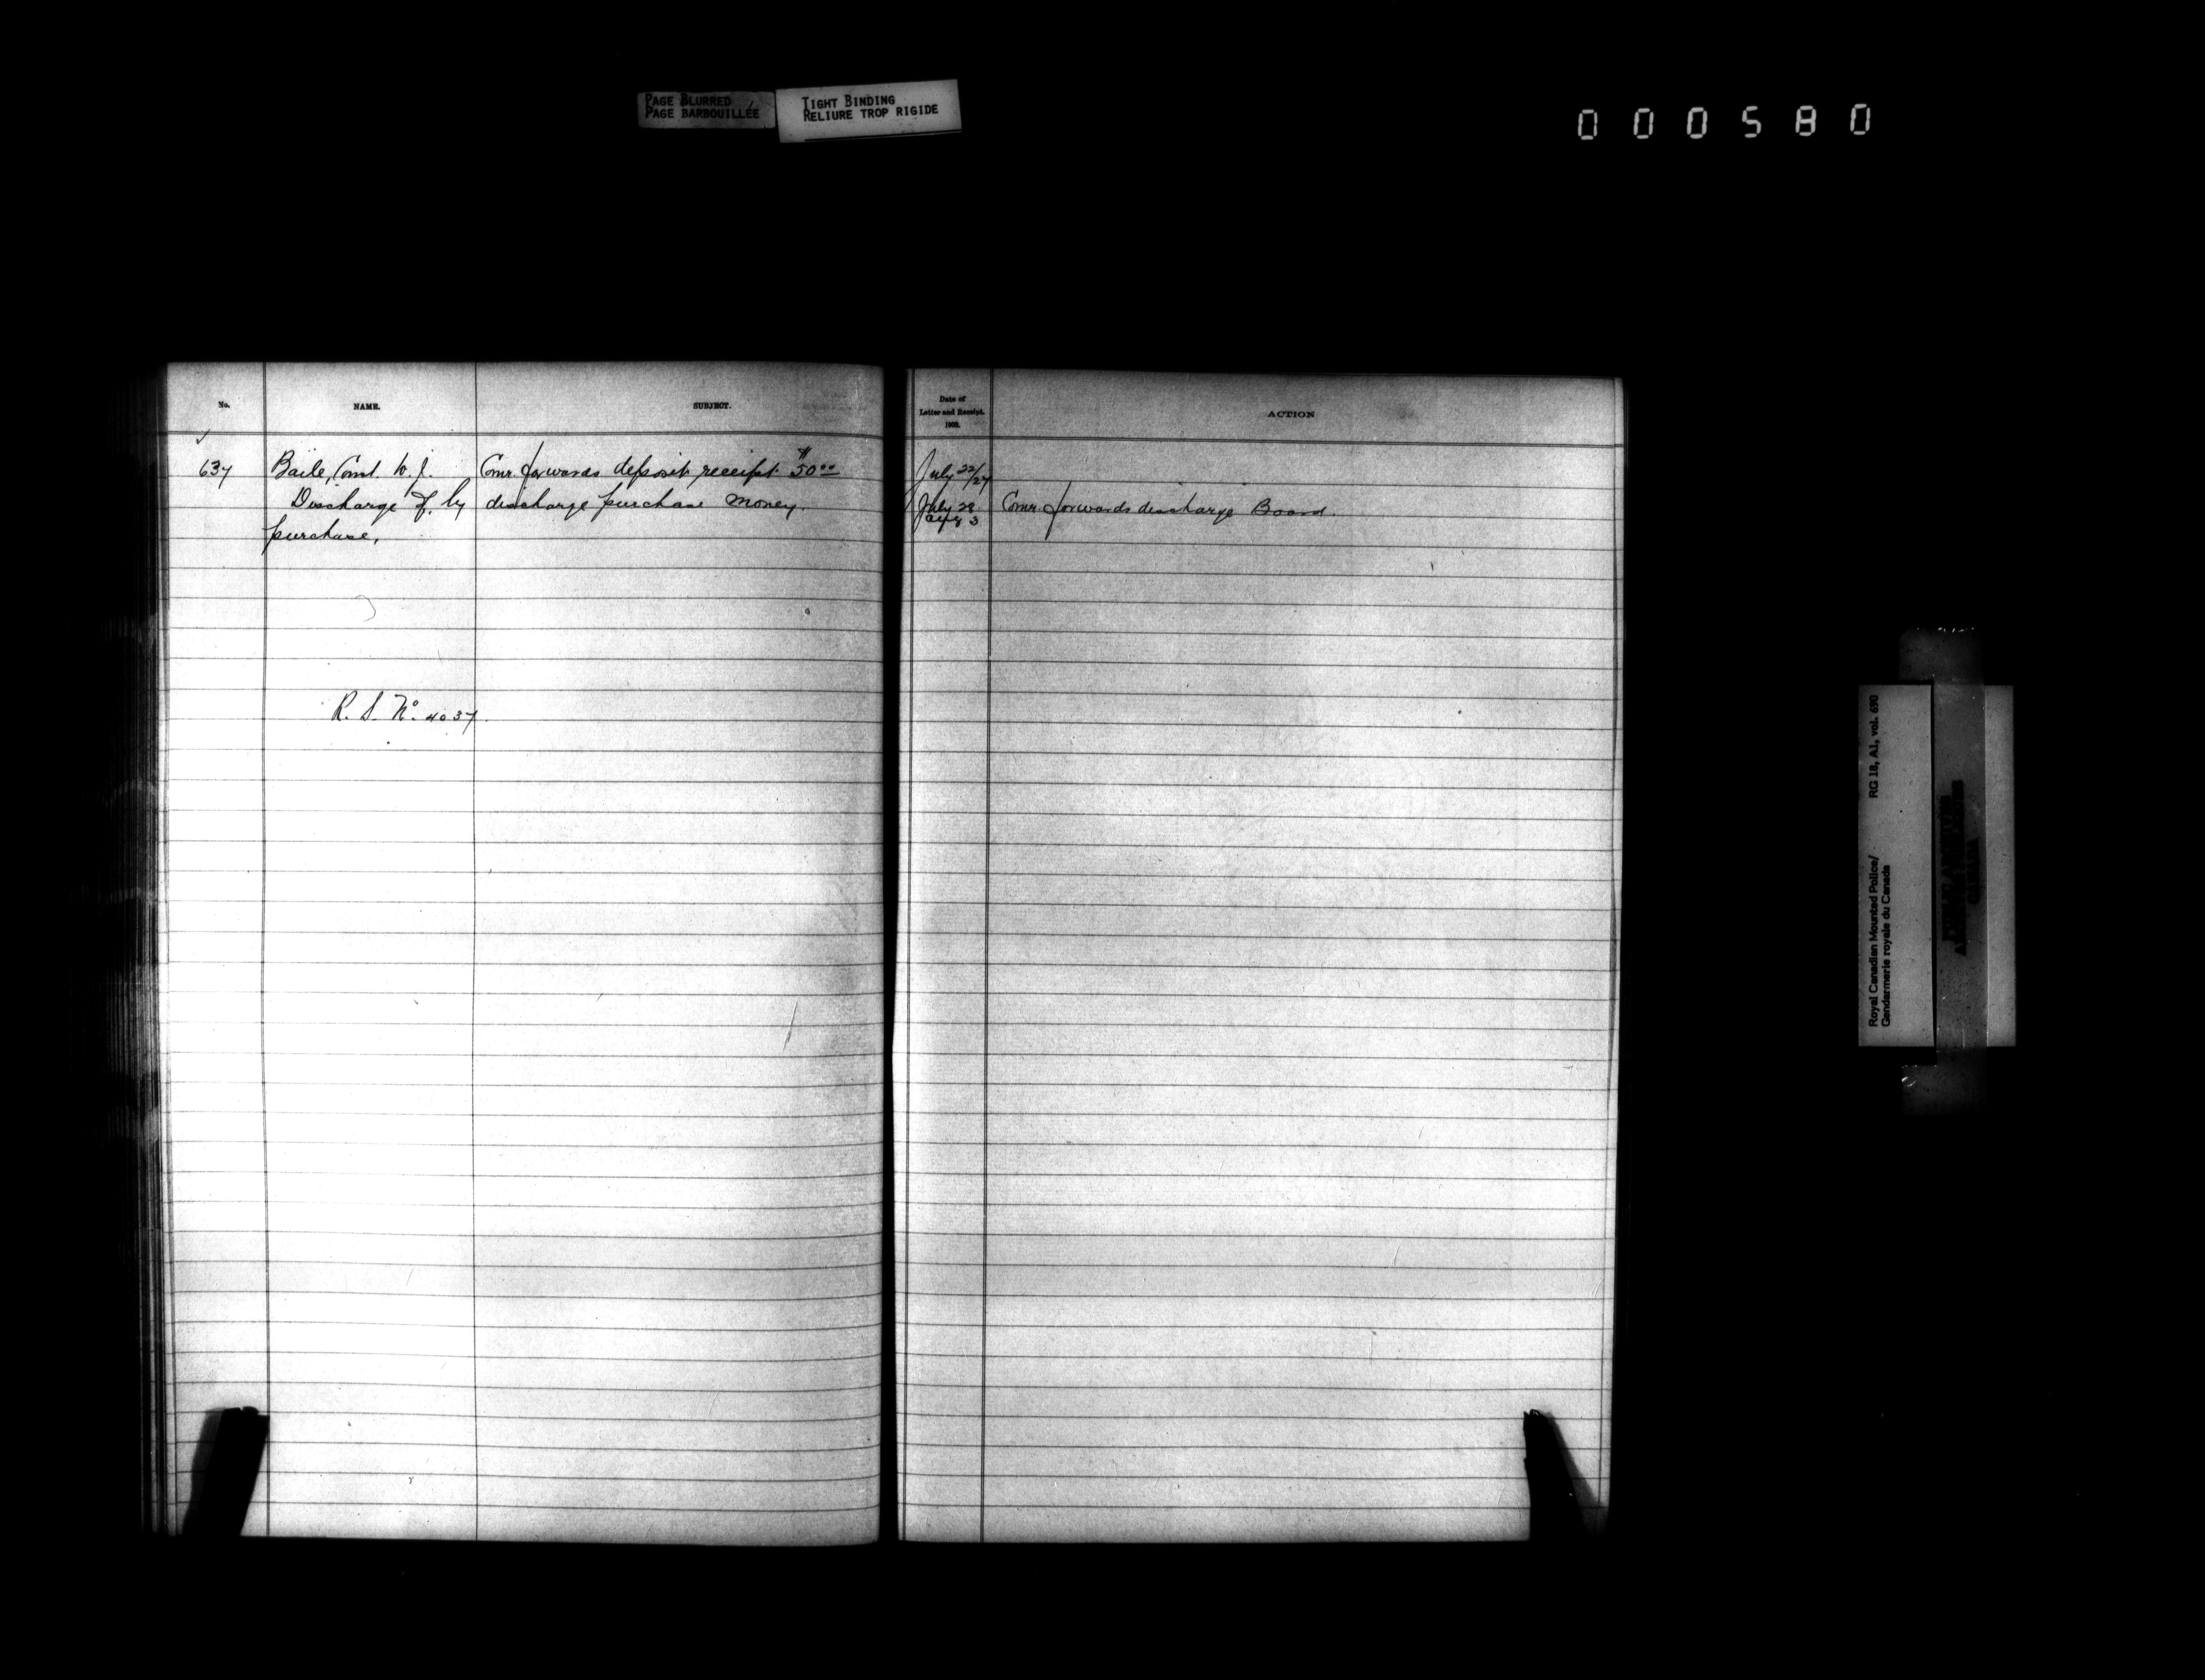 PAGE BLURRED
PAGE BARBOUILLÉE
TIGHT BINDING
RELIURE TROP RIGIDE
000580
No. NAME. SUBJECT.
Date of
Letter and Receipt.
1903.
ACTION
✓
637 Baile, Const. W. J. Comr. forwards deposit receipt $50.00 July 22/27
Discharge of, by discharge purchase money. July 28 Comr. forwards discharge Board.
Aug 3
purchase.
R. S. No. 4037.
RG 18, A1, vol. 690
Royal Canadian Mounted Police/
Gendarmerie royale du Canada